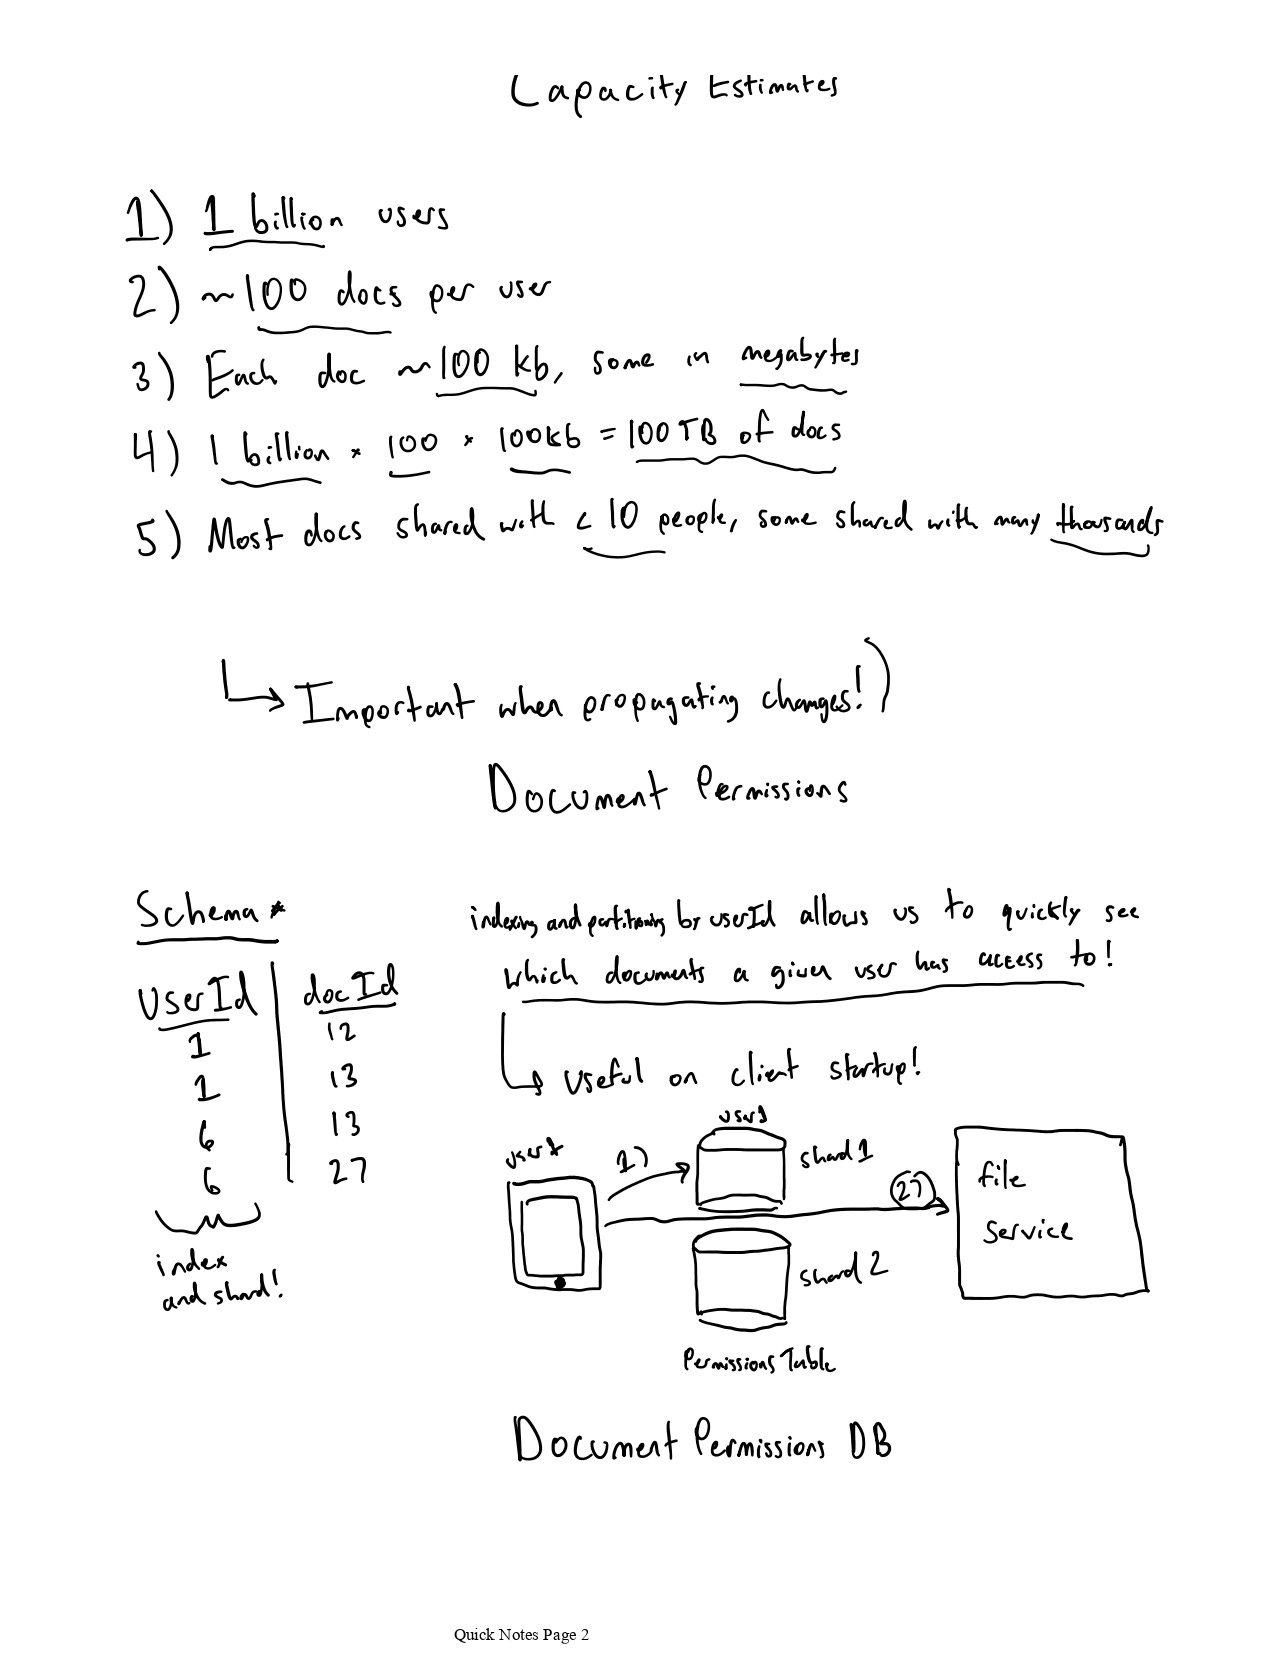 Capacity Estimates
1) 1 billion users
2) ~100 docs per user
3) Each doc ~100 kb, some in megabytes
4) 1 billion * 100 * 100kb = 100TB of docs
5) Most docs shared with < 10 people, some shared with many thousands
Important when propagating changes!)
Document Permissions
Schema *
UserId docId
1 12
1 13
6 13
6 27
index
and shard!
indexing and partitioning by userId allows us to quickly see
which documents a given user has access to!
Useful on client startup!
user1
shard 1
1)
27
file
service
shard 2
Permissions Table
Document Permissions DB
Quick Notes Page 2